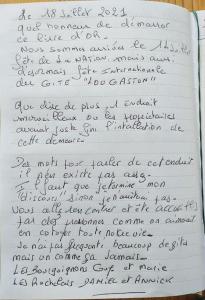 Le 18 Juillet 2021,
quel honneur de démarrer
ce livre d'OR.
Nous sommes arrivés le 14 Juillet
fête de la NATION, mais aussi
désormais fête Internationale
du GITE "LOU GASTOU"
Que dire de plus, l'endroit
merveilleux où les propriétaires
avaient juste fini l'installation de
cette demeure.
Des mots pour parler de cet endroit
il n'en existe pas assez.
Il faut que je termine mon
discours sinon je n'en finirai pas.
Vous allez vous entrer et être accueillis
par des personnes comme on aimerait
en côtoyer toute notre vie.
Je n'ai pas fréquenté beaucoup de gîtes
mais un comme ça Jamais.
Les Bourguignons Guy et Marie
Les Rochelais DANIEL et ANNICK